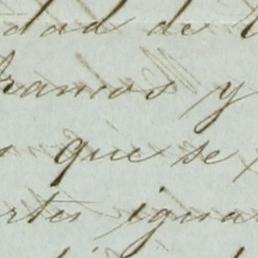 dad de
francos y
que se
rtes igua